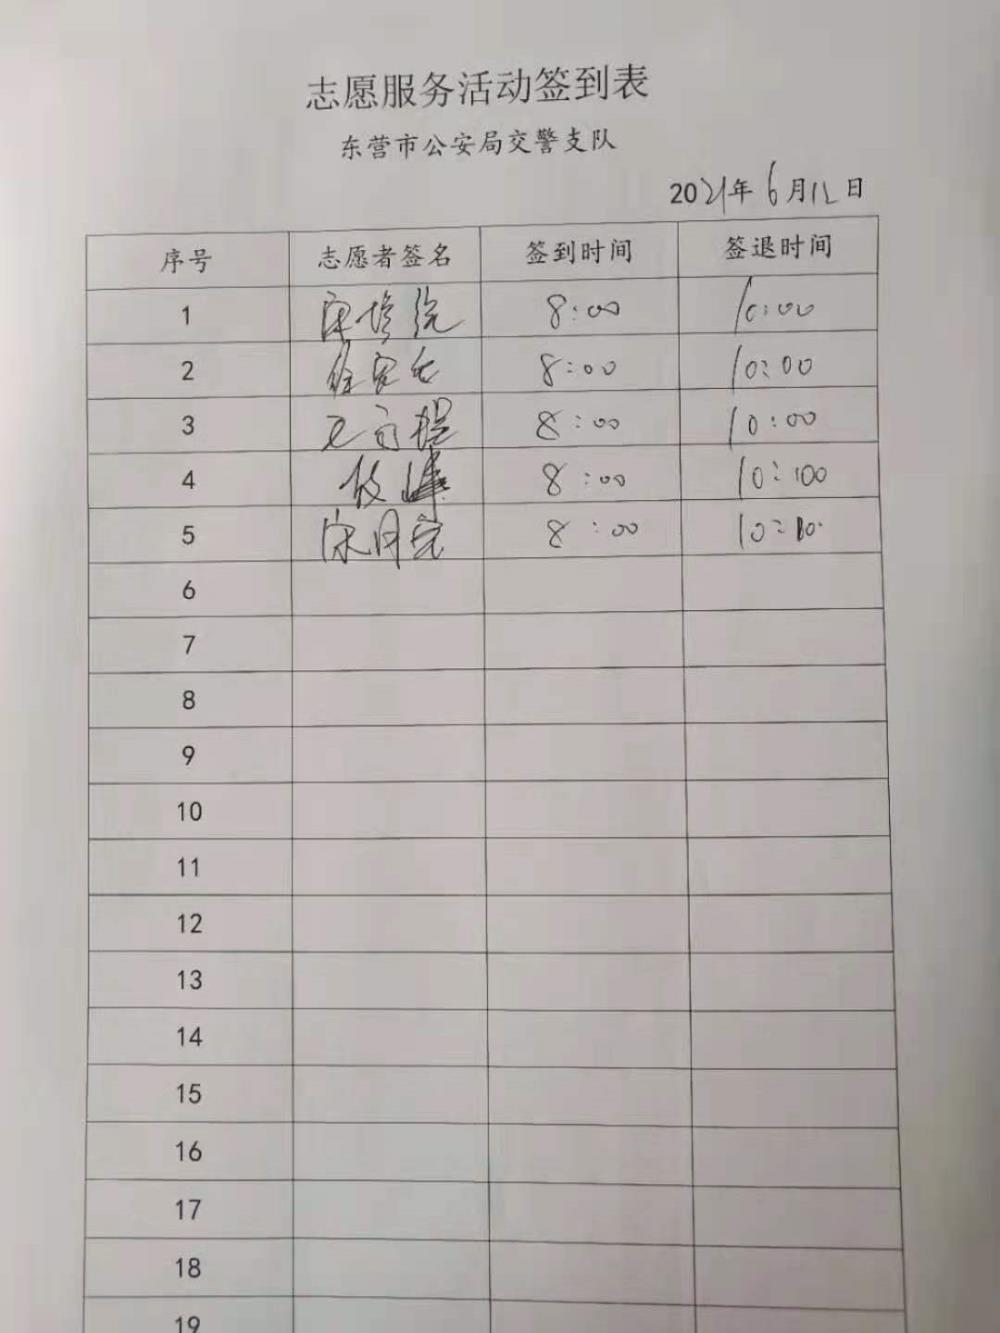 志愿服务活动签到表
东营市公安局交警支队
2021年6月12日
序号 志愿者签名 签到时间 签退时间
1 8:00 10:00
2 8:00 10:00
3 8:00 10:00
4 8:00 10:00
5 宋月 8:00 10:
6
7
8
9
10
11
12
13
14
15
16
17
18
19